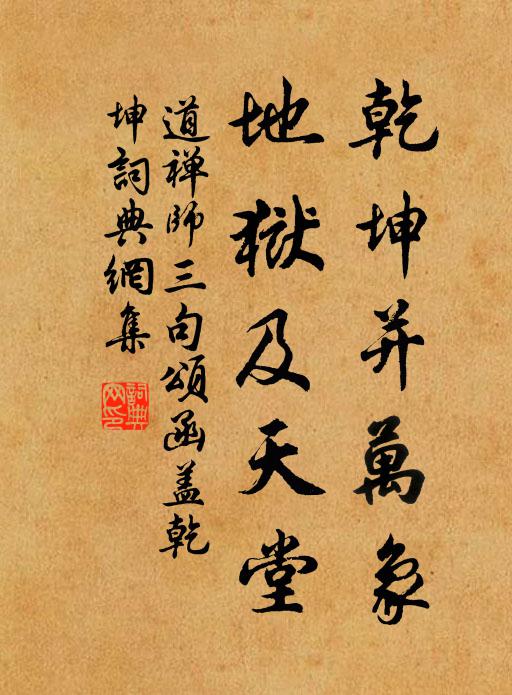 乾坤并萬象
地獄及天堂
道禅師三句頌函蓋乾
坤詞典網集
詞典
网印